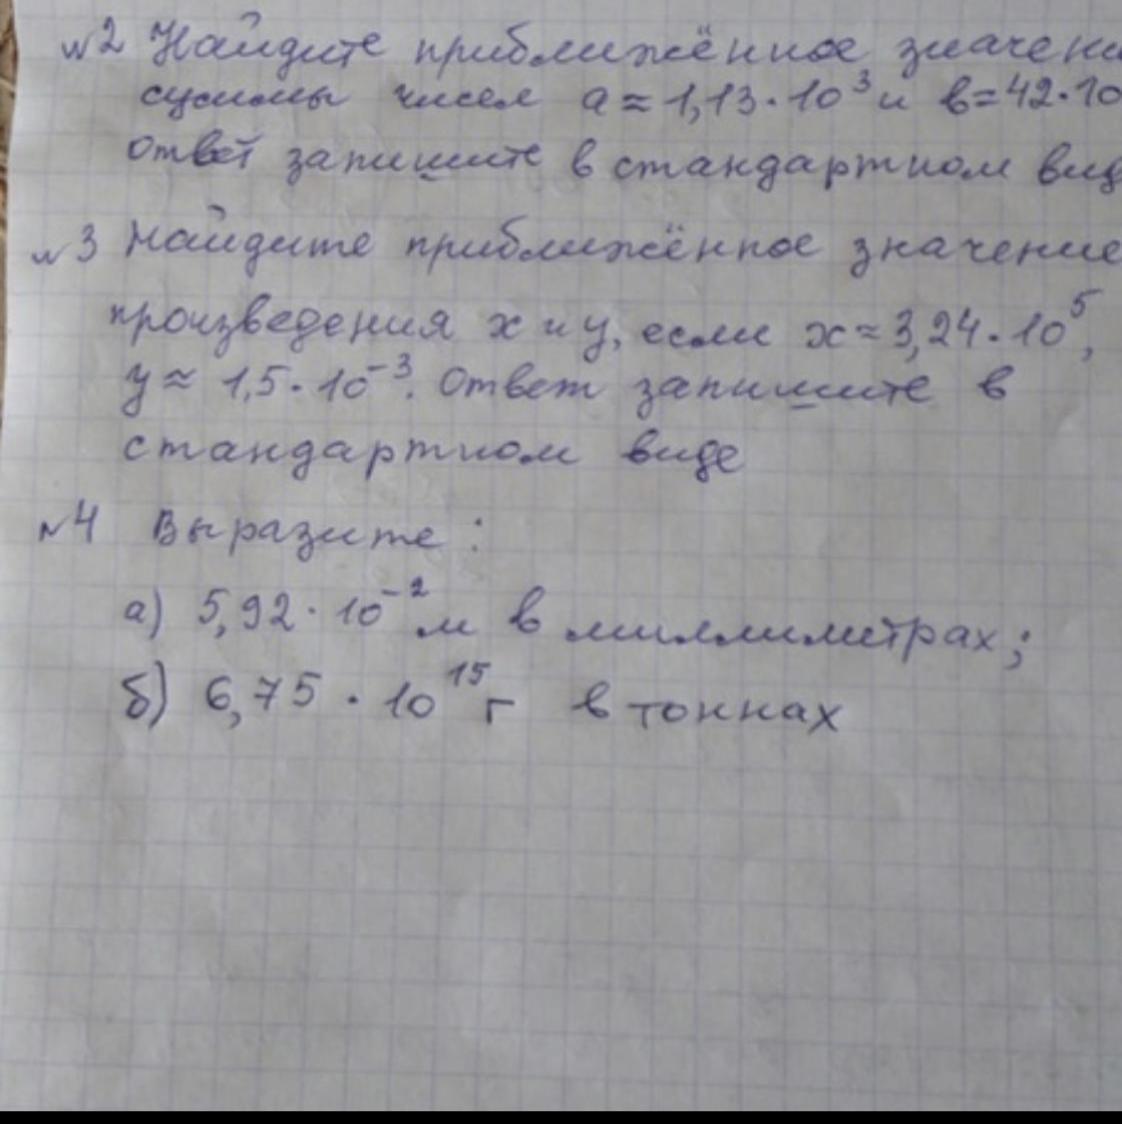 №2 Найдите приближённое значени
суммы чисел a≈1,13·10³ и b=42·10
ответ запишите в стандартном вид
№3 Найдите приближённое значение
произведения x и y, если x≈3,24·10⁵,
y≈1,5·10⁻³. Ответ запишите в
стандартном виде
№4 Выразите:
а) 5,92·10⁻² м в миллиметрах;
б) 6,75·10¹⁵ г в тоннах